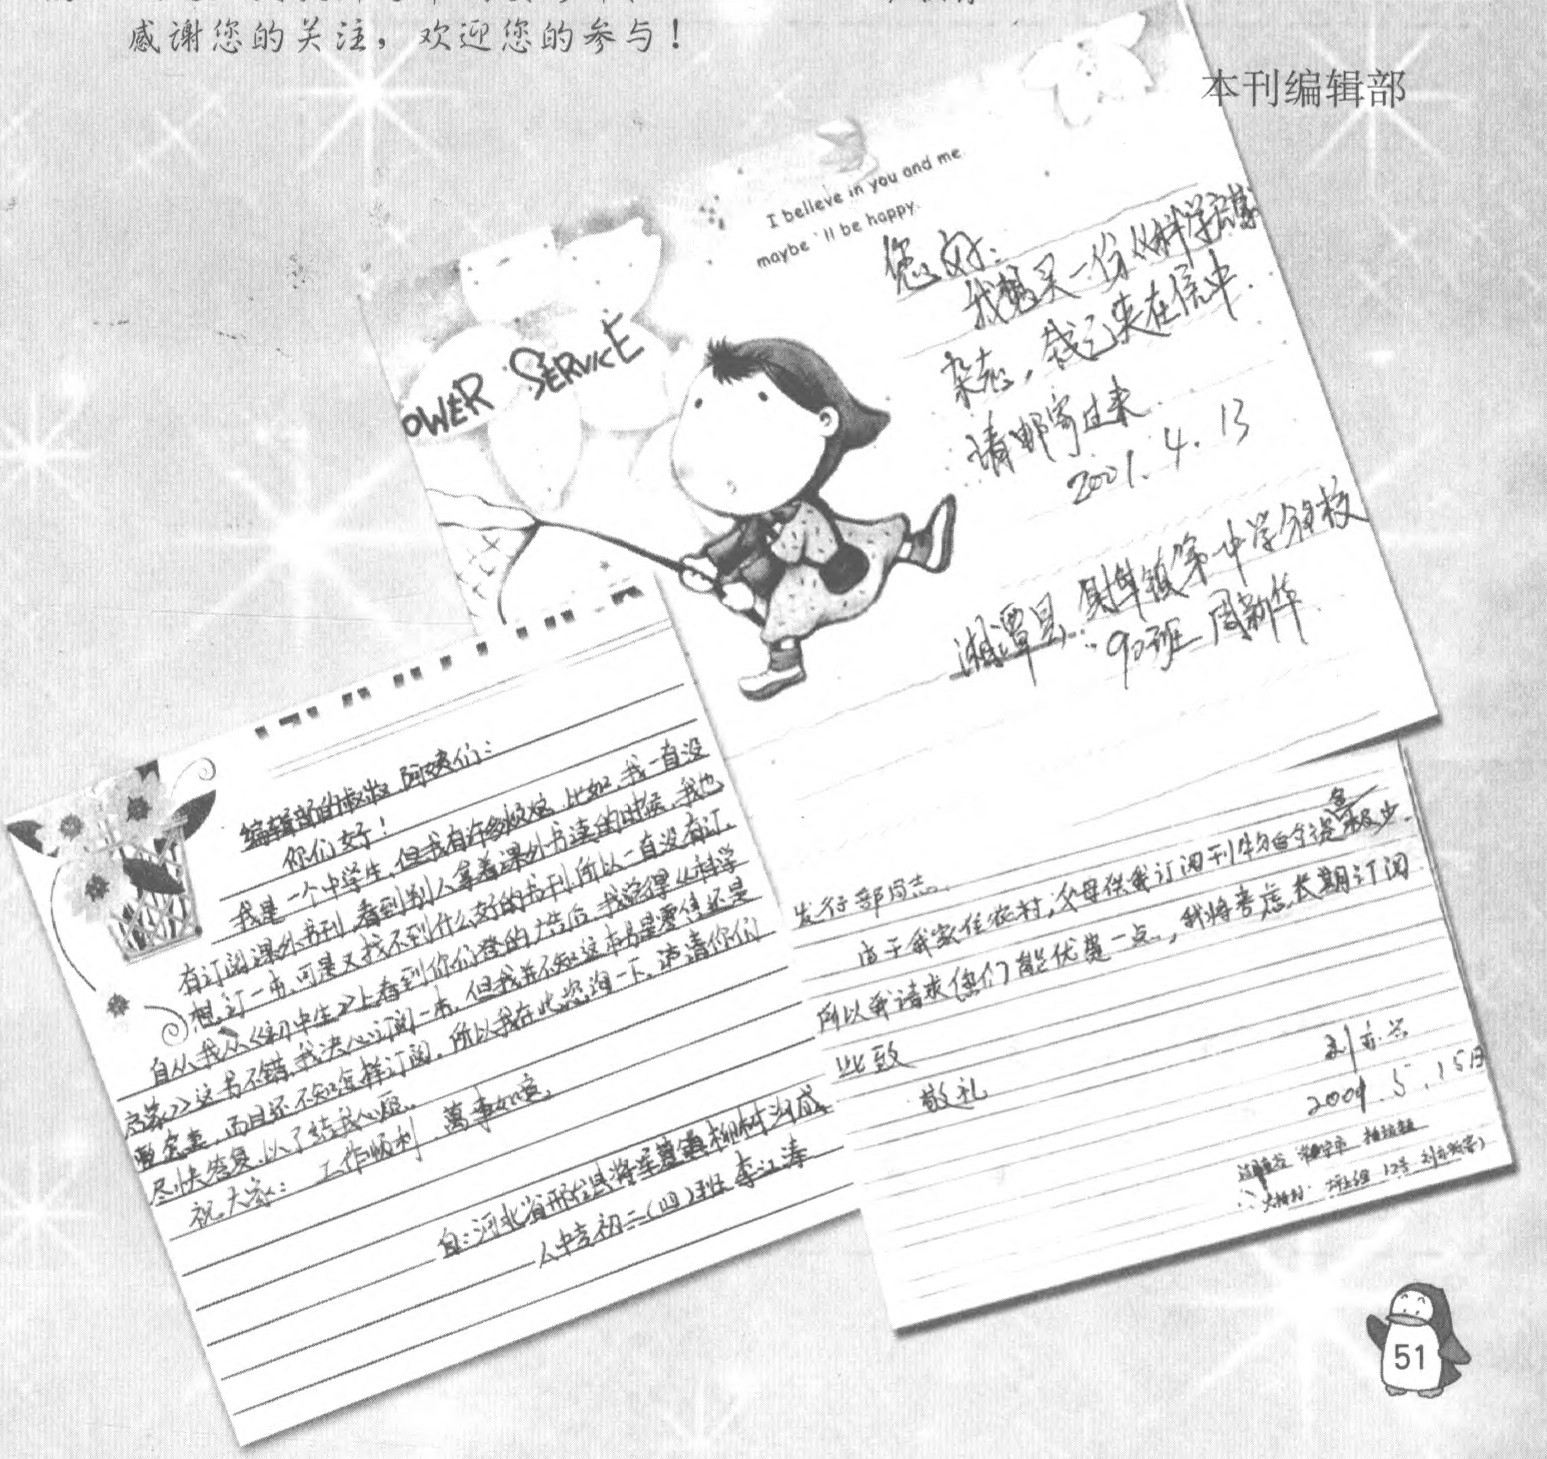 感谢您的关注，欢迎您的参与！
本刊编辑部
I believe in you and me
maybe'll be happy.
OWER SERVICE
您好：
我想买一份《科学启蒙
杂志，钱已夹在信中.
请邮寄过来.
2001.4.13
湘潭县 镇第一中学分校
90班 周新华
编辑部的叔叔、阿姨们：
你们好！
我是一个中学生，但我有许多烦恼，比如，我一直没
有订阅课外书刊，看到别人拿着课外书读的时候，我也
想订一本，可是又找不到什么好的书刊所以一直没有订。
自从我从《初中生》上看到你们登的广告后，我觉得《科学
启蒙》这书不错，我决心订阅一本，但我并不知这本书是零售还是
要定卖，而且还不知怎样订阅，所以我在此咨询一下，请你们
尽快答复，以了结我心愿。
祝大家： 工作顺利，萬事如意。
自：河北省邢台县将军墓镇柳树沟
中学初二（四）班 李江涛
发行部同志：
由于我家住农村，父母供我订阅刊物的钱极少.
所以我请求您们能优惠一点，我将考虑长期订阅
此致
敬礼
2001.5.15日
51